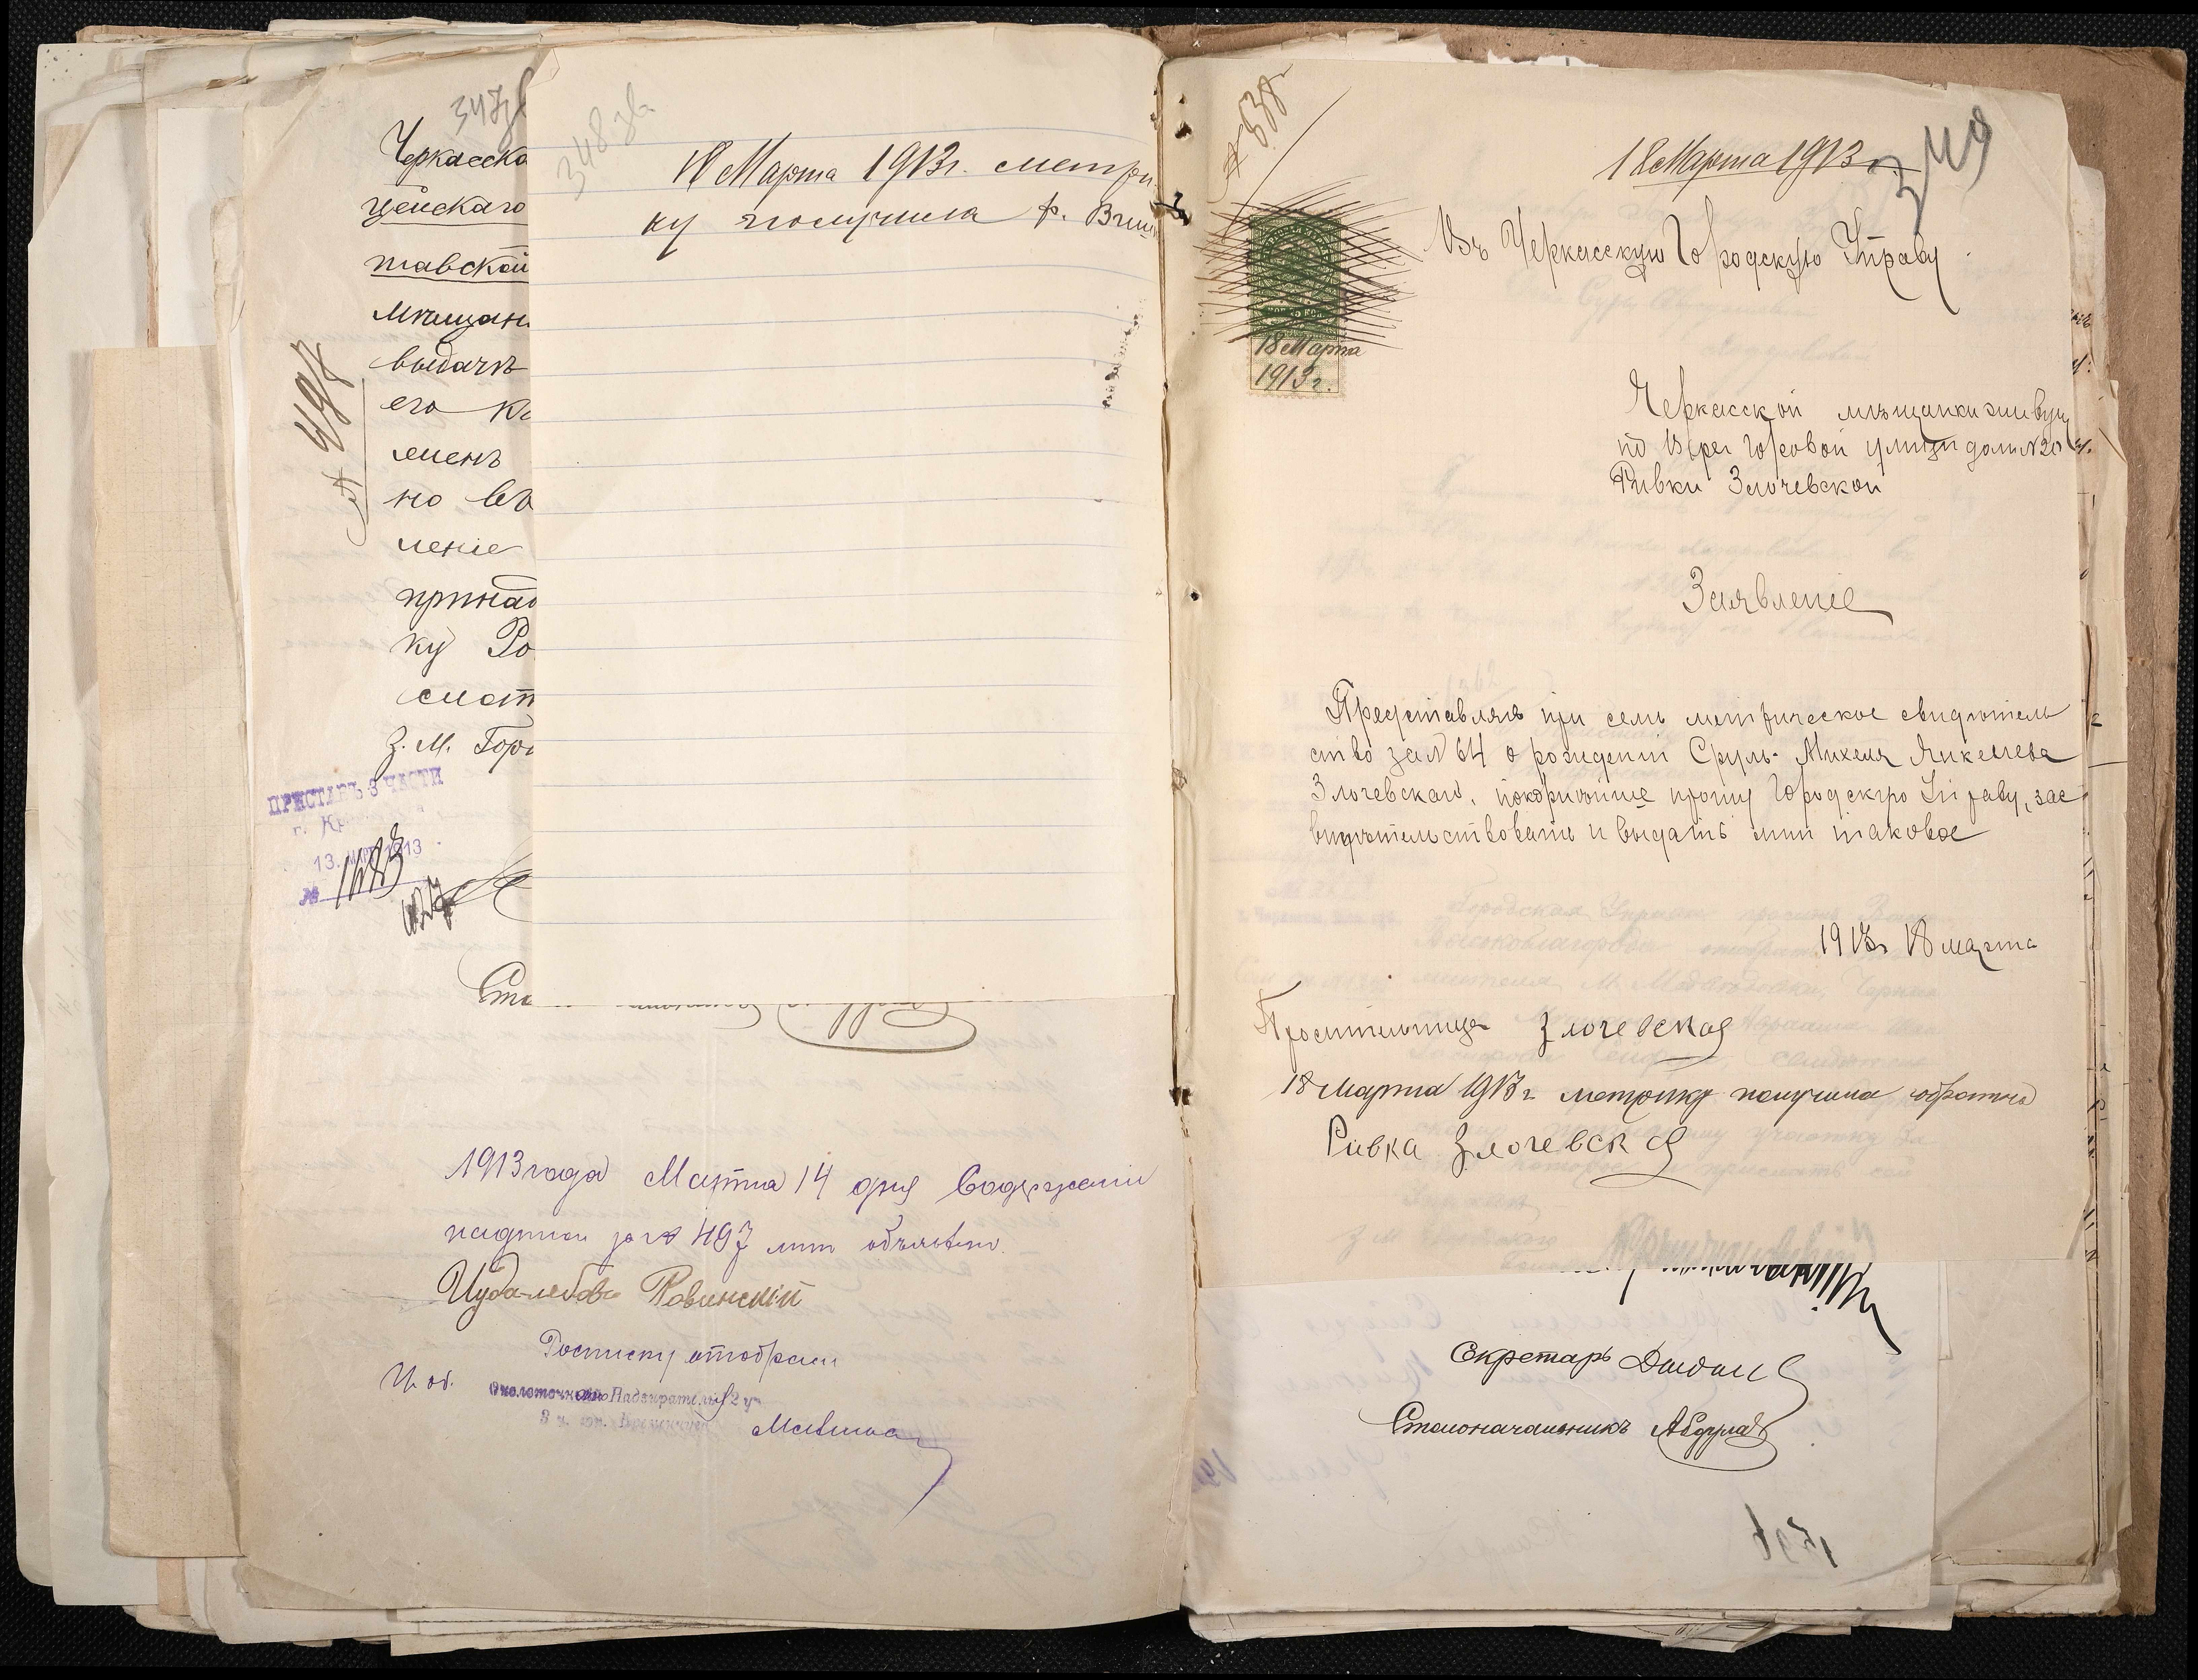 347
Черкасско
цейскаго
тавской
Мѣщан
выдачѣ
его
менъ
но въ
леніе
принад
ку Ро
смот
З. М. Горо
№ 497
ПРИСТАВЪ 3 ЧАСТИ
г. Кр
13. 1913
№ 1683
348 зв
18 Марта 1913г. метри
ку получила Р.
1913 года Марта 14 дня Содержаніе
надписи за № 497 мнѣ объявлено.
Иуда-лейбъ Ровинскій
Росписку отобралъ
И. об. Околоточнаго Надзирателя 2 уч
3 ч. гор.
№ 538
349
18 Марта 1913 г.
18 Марта
1913 г.
Въ Черкасскую Городскую Управу
Черкасской мѣщанки живущ
по Верх Горовой улицы домъ №20
Ривки Злочевской
Заявленіе
Представляя при семъ метрическое свидѣтель
ство за № 64 о рожденіи Сруль-Михеля Янкелева
Злочевскаго, покорнѣйше прошу Городскую Управу, зас
видѣтельствовать и выдать мнѣ таковое
1913г 18 марта
Просительница Злочевская
18 Марта 1913 г метрику получила обратно
Ривка Злочевская
Секретарь
Столоначальникъ